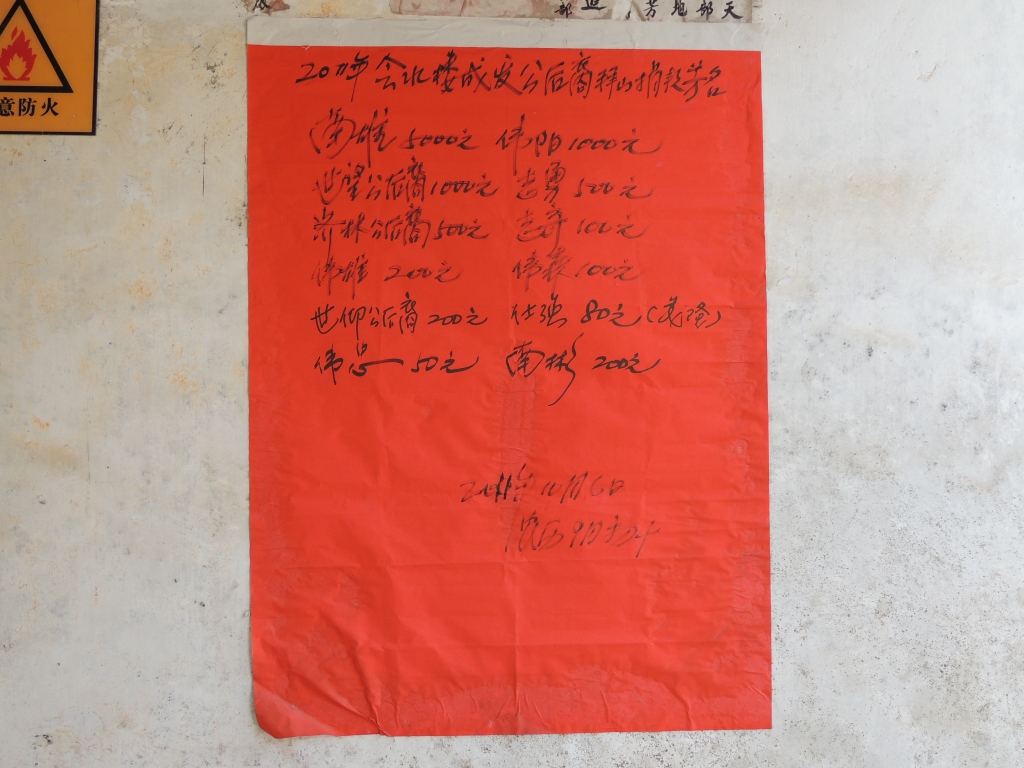 天部地芳
意防火
年会北楼成发公后裔拜山捐款芳名
南雄 5000元 伟阳 1000元
世望公后裔 1000元 志勇 500元
林公后裔 500元 志奇 100元
伟雄 200元 伟森 100元
世仰公后裔 200元 仕强 80元
伟忠 50元 南彬 200元
年10月6日
农历9月